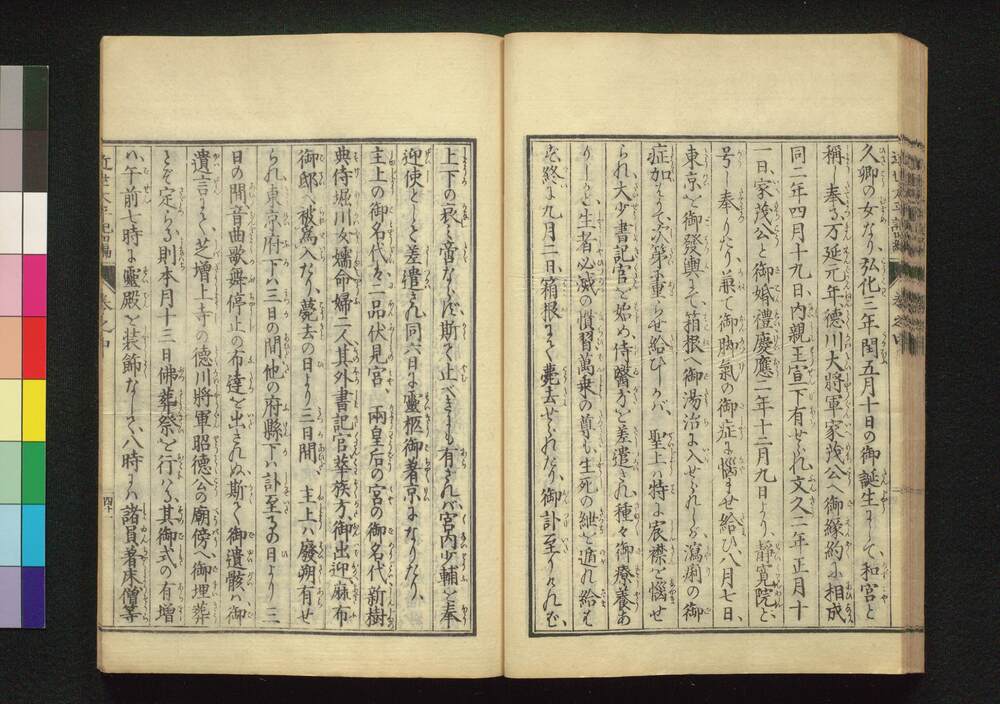 久卿の女なり弘化三年閏五月十日の御誕生にして和宮と
稱し奉る万延元年德川大將軍家茂公へ御緣約に相成
同二年四月十九日内親王宣下有せられ文久二年正月十
一日家茂公と御婚禮慶應二年十二月九日より靜寛院と
号し奉りたり兼て御脚氣の御症に惱ませ給ひ八月七日
東京を御發輿にて箱根へ御湯治に入せられしが瀉痢の御
症加はりて次第に重らせ給ひしかバ聖上にハ特に宸襟を惱せ
られ大少書記官を始め侍醫方を差遣され種々御療養あ
りしかど生者必滅の慣習萬乗の尊も生死の紲を遁れ給は
ず終に九月二日箱根にて薨去せられたり御訃至りけれむ
上下の哀み啻ならず斯て止べきにも有ざれバ宮内少輔を奉
迎使として差遣され同六日に靈柩御着京になりたり
主上の御名代には二品伏見宮 兩皇后の宮の御名代新樹
典侍堀川女嬬命婦二人其外書記官華族方御出迎麻布
御邸へ被爲入たり薨去の日より三日間 主上ハ廢朔有せ
られ東京府下ハ三日の間他の府縣下ハ訃至るの日より三
日の間音曲歌舞停止の布達を出されぬ斯て御遺骸ハ御
遺言にて芝增上寺の德川將軍昭德公の廟傍へ御埋葬
とぞ定らる則本月十三日佛葬祭を行ハる其御式の有增
ハ午前七時に靈殿を装飾なして八時にハ諸員着床僧等
卷之四
四十一